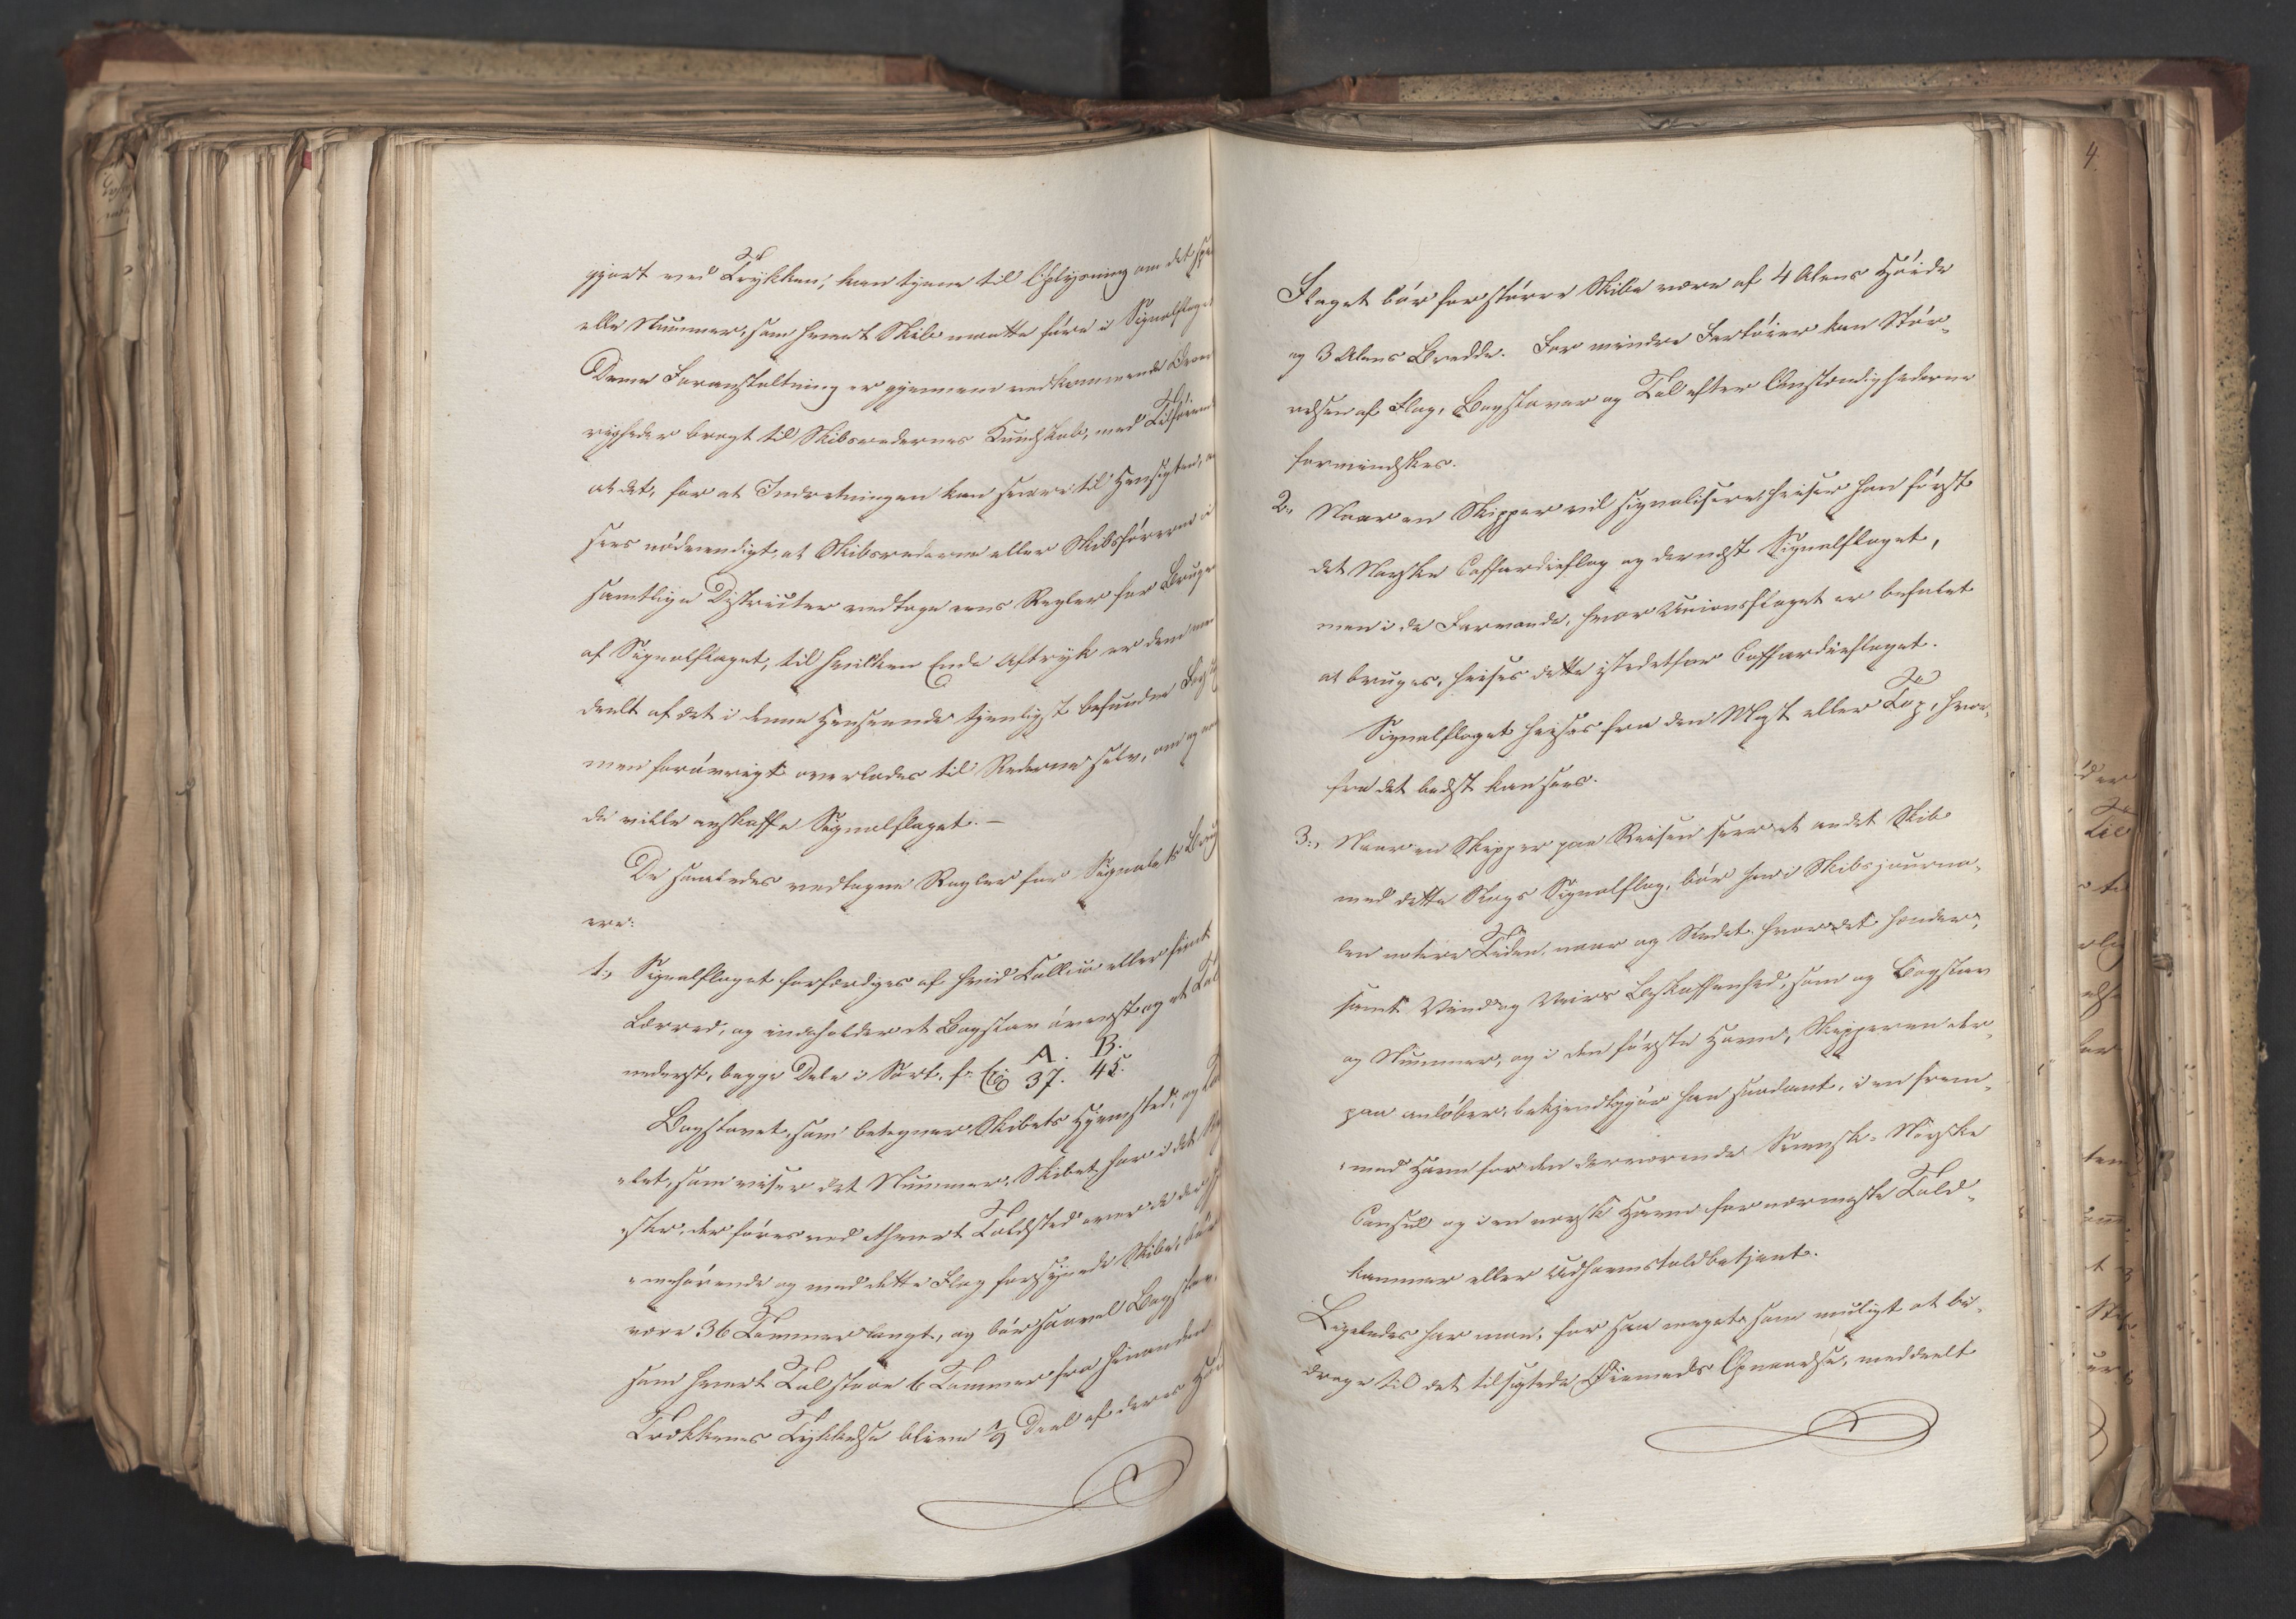 gjort ved Trykken, kan tjene til Oplysning om det spe
elle Nummer, som hvert Skib maatte føre i Signalflaget
Denne Foranstaltning er gjennem vedkommende Øvrig
righeder bragt til Skibsredernes Kundskab, med Tilføiende
at det, for at Indretningen kan svare til Hensigten, an
sees nødvendigt, at Skibsrederne eller Skibsførerne i
samtlige Districter vedtage eens Regler for Brugen
af Signalflaget, til hvilken Ende Aftryk er dem med
deelt af det i denne Henseende tjenligst befundne
men forøvrigt overlades til Rederne selv, om og
de ville anskaffe Signalflaget. —
De saaledes vedtagne Regler for Signalets Brug
ere:
1., Signalflaget forfærdiges af hvid Kallico eller fiint
Lærred, og indeholder et Bogstav øverst og et Tal
nederst, begge Dele i Sort, f: Ex: A. 37. B. 45.
Bogstavet, som betegner Skibets Hjemsted, og Tal
let, som viser det Nummer, Skibet har i det Re
ster, der føres ved ethvert Toldsted over de der hj
mehørende og med dette Flag forsynede Skibe, bør
være 36 Tommer langt, og bør saavel Bogstav,
som hvert Tal staae 6 Tommer fra hinanden
Trækkenes Tykkelse blive 1/9 Deel af deres Høi
4.
Flaget bør for større Skibe være af 4 Alens Høide
og 3 Alens Bredde. For mindre Fartøier kan Stør-
relsen af Flag, Bogstaver og Tal efter Omstændighederne
formindskes.
2., Naar en Skipper vil signalisere, heiser han først
det Norske Coffardieflag og dernæst Signalflaget,
men i de Farvande, hvor Unionsflaget er befalet
at bruges, heises dette istedetfor Coffardieflaget.
Signalflaget heises fra den Mast eller Top, hvor-
fra det bedst kan sees.
3., Naar en Skipper paa Reisen seer et andet Skib
med dette Slags Signalflag, bør han i Skibsjourna-
len notere Tiden, naar og Stedet, hvor det hænder,
samt Vind og Veirs Beskaffenhed, som og Bogstav
og Nummer, og i den første Havn, Skipperen der-
paa anløber, bekjendtgjør han saadant, i en frem-
med Havn for den derværende Svensk-Norske
Consul og i en norsk Havn for nærmeste Told-
kammer eller Udhavnstoldbetjent.
Ligeledes har man, for saa meget som muligt at bi-
drage til det tilsigtede Øiemeds Opnaaelse, meddeelt